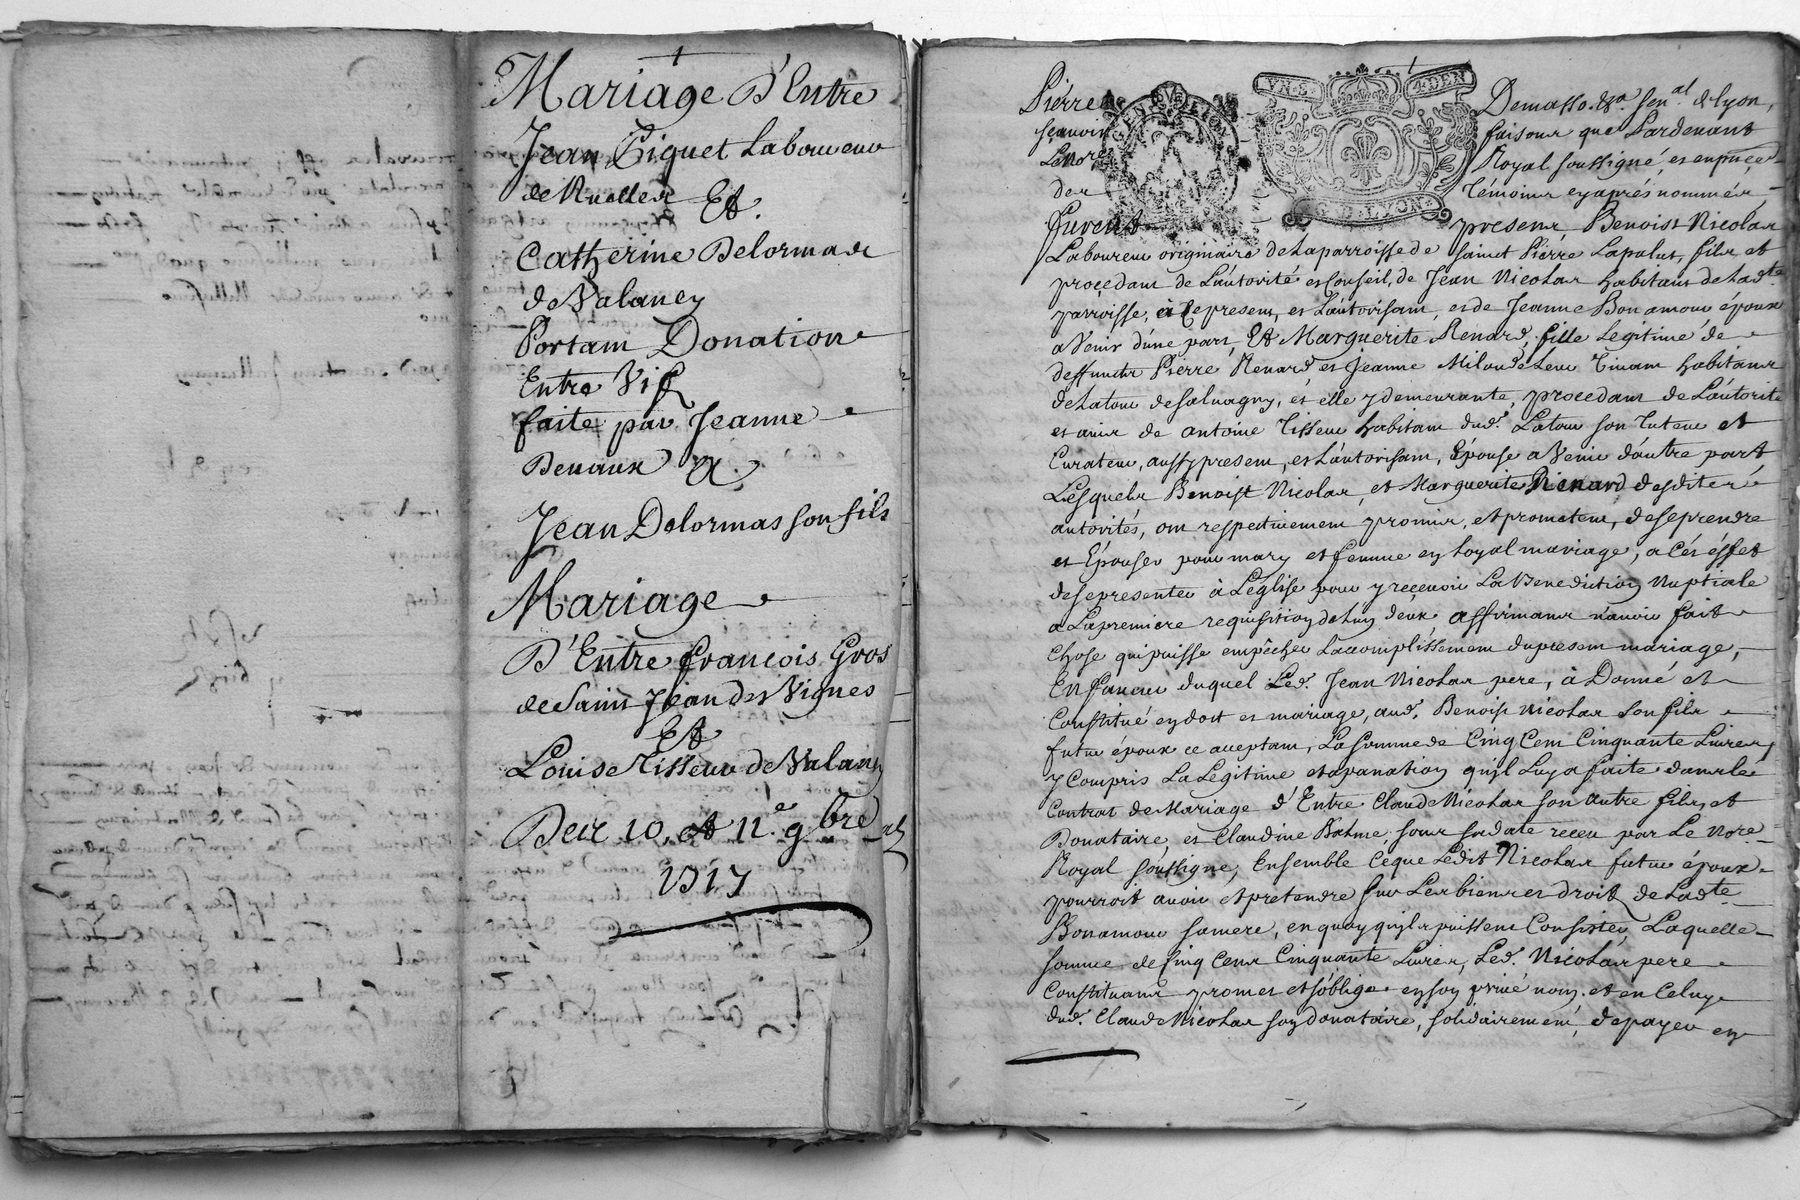 Mariage D'Entre
Jean Tiquet Laboureur
de Ruelles Et
Catherine Delormas
de Valancy
Portant Donation
Entre Vifs
faite par Jeanne
Devaux A
Jean Delormas son fils
Mariage
D'Entre francois Gros
de Saint Jean des Vignes
Et
Louise Tisseur de Valancy
Des 10, et 11e 9bre
1717
Pierre Demasso &a. Senal de lyon,
scavoir faisons que Pardevant
Le Nore Royal soussigné, et en
des Témoins cy aprés nommés,
furent presens, Benoist Nicolas
Laboureur originaire de La parroisse de saint Pierre Lapalus, fils et
procedant de L'autorité et Conseil, de Jean Nicolas habitant de Ladte
parroisse, à ce present, et L'autorisant, et de Jeanne Bonamour époux
a Venir d'une part, Et Marguerite Renard, fille Legitime de
deffuncts Pierre Renard et Jeanne habitans
de Latour de Salvagny, et elle y demeurante, procedant de L'autorité
et avis de antoine Tisseur habitant dud. Latour son Tuteur et
Curateur, aussy present, et L'autorisant, Epouse a Venir d'autre part
Lesquels Benoist Nicolas, et Marguerite Renard desdites
autorités, ont respectivement promis, et promettent, de se prendre
et Epouser pour mary et femme en Loyal mariage, a Cés éffet
de se presenter à L'église pour y recevoir La Benediction Nuptiale
a La premiere requisition de L'un deux affirmans n'avoir fait
Chose qui puisse empêcher L'accomplissement du present mariage,
En faveur duquel Led. Jean Nicolas pere, à Donné et
Constitué en dot et mariage, aud. Benoist Nicolas son fils
futur époux ce acceptant, La somme de Cinq Cent Cinquante Livres,
y Compris La Legitime et apanation qu'il Luy a faite dans le
Contrat de Mariage d'Entre Claude Nicolas son autre fils, et
Donataire, et Claudine sous sa date receu par Le Nore
Royal soussigné, Ensemble Céque Ledit Nicolas futur époux
pourroit avoir et pretendre sur Les biens et droits de Ladte
Bonamour sa mere, en quoy qu'ils puissent Consister, Laquelle
somme de Cinq Cens Cinquante Livres, Led. Nicolas pere
Constituant promet et s'oblige en son privé nom, et en Celuy
dud. Claude Nicolas son donataire, solidairement, de payer en